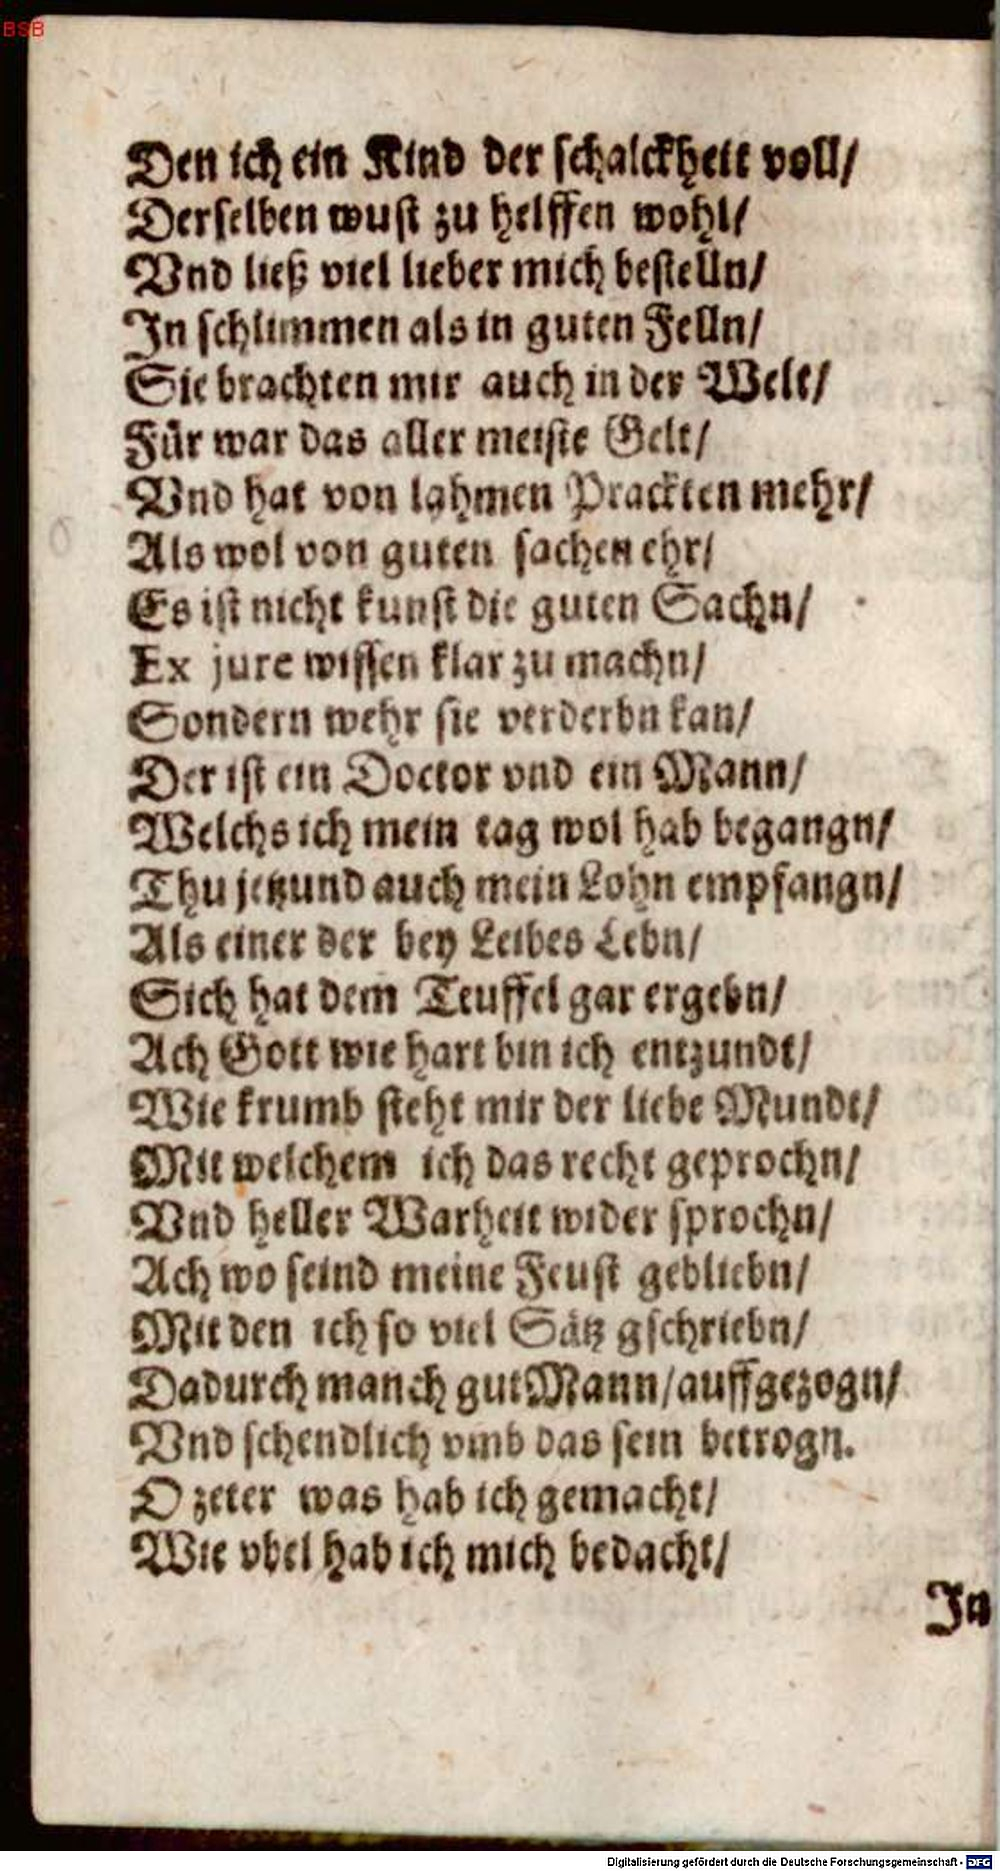 BSB
Den ich ein Kind der schalckheit voll/
Derselben wust zu helffen wohl/
Vnd ließ viel lieber mich bestelln/
In schlimmen als in guten Felln/
Sie brachten mir auch in der Welt/
Für war das aller meiste Gelt/
Vnd hat von lahmen Prackten mehr/
Als wol von guten sachen ehr/
Es ist nicht kunst die guten Sachn/
Ex jure wissen klar zu machn/
Sondern wehr sie verderbn kan/
Der ist ein Doctor vnd ein Mann/
Welchs ich mein tag wol hab begangn/
Thu jetzund auch mein Lohn empfangn/
Als einer der bey Leibes Lebn/
Sich hat dem Teuffel gar ergebn/
Ach Gott wie hart bin ich entzundt/
Wie krumb steht mir der liebe Mundt/
Mit welchem ich das recht geprochn/
Vnd heller Warheit wider sprochn/
Ach wo seind meine Feust gebliebn/
Mit den ich so viel Sätz gschriebn/
Dadurch manch gut Mann/auffgezogn/
Vnd schendlich vmb das sein betrogn.
O zeter was hab ich gemacht/
Wie vbel hab ich mich bedacht/
In
Digitalisierung gefördert durch die Deutsche Forschungsgemeinschaft - DFG